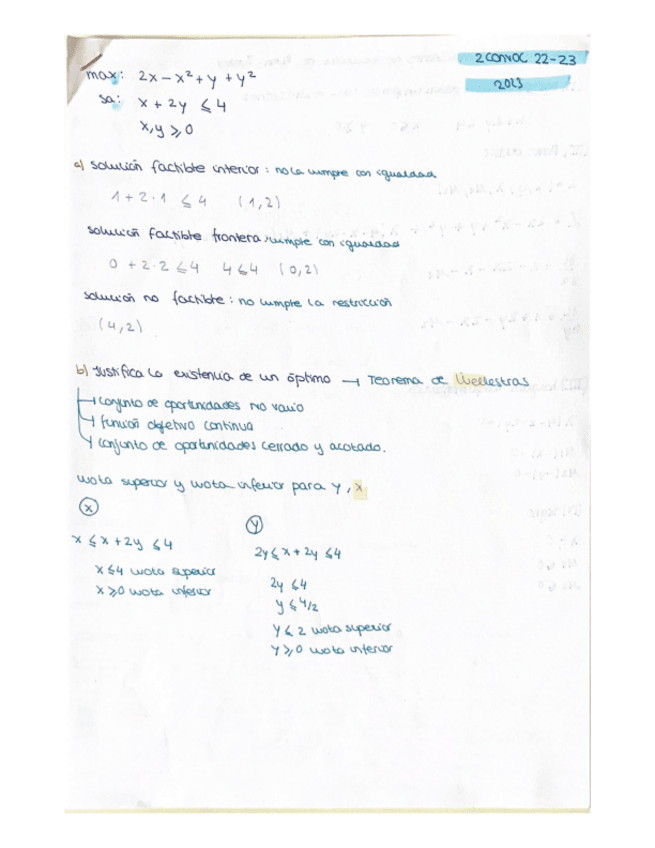 2 CONVOC 22-23
2023
max: 2x - x² + y + y²
sa: x + 2y ≤ 4
x,y ≥ 0
a) solución factible interior: no la cumple con igualdad
1 + 2·1 ≤ 4 (1,2)
solución factible frontera: cumple con igualdad
0 + 2·2 ≤ 4 4 ≤ 4 (0,2)
solución no factible: no cumple la restricción
(4,2)
b) Justifica la existencia de un óptimo → Teorema de Weellestras
→ conjunto de oportunidades no vacio
→ función objetivo continua
→ conjunto de oportunidades cerrado y acotado.
wota superior y wota inferior para y, x
x
x ≤ x + 2y ≤ 4
x ≤ 4 wota superior
x ≥ 0 wota inferior
y
2y ≤ x + 2y ≤ 4
2y ≤ 4
y ≤ 4/2
y ≤ 2 wota superior
y ≥ 0 wota inferior